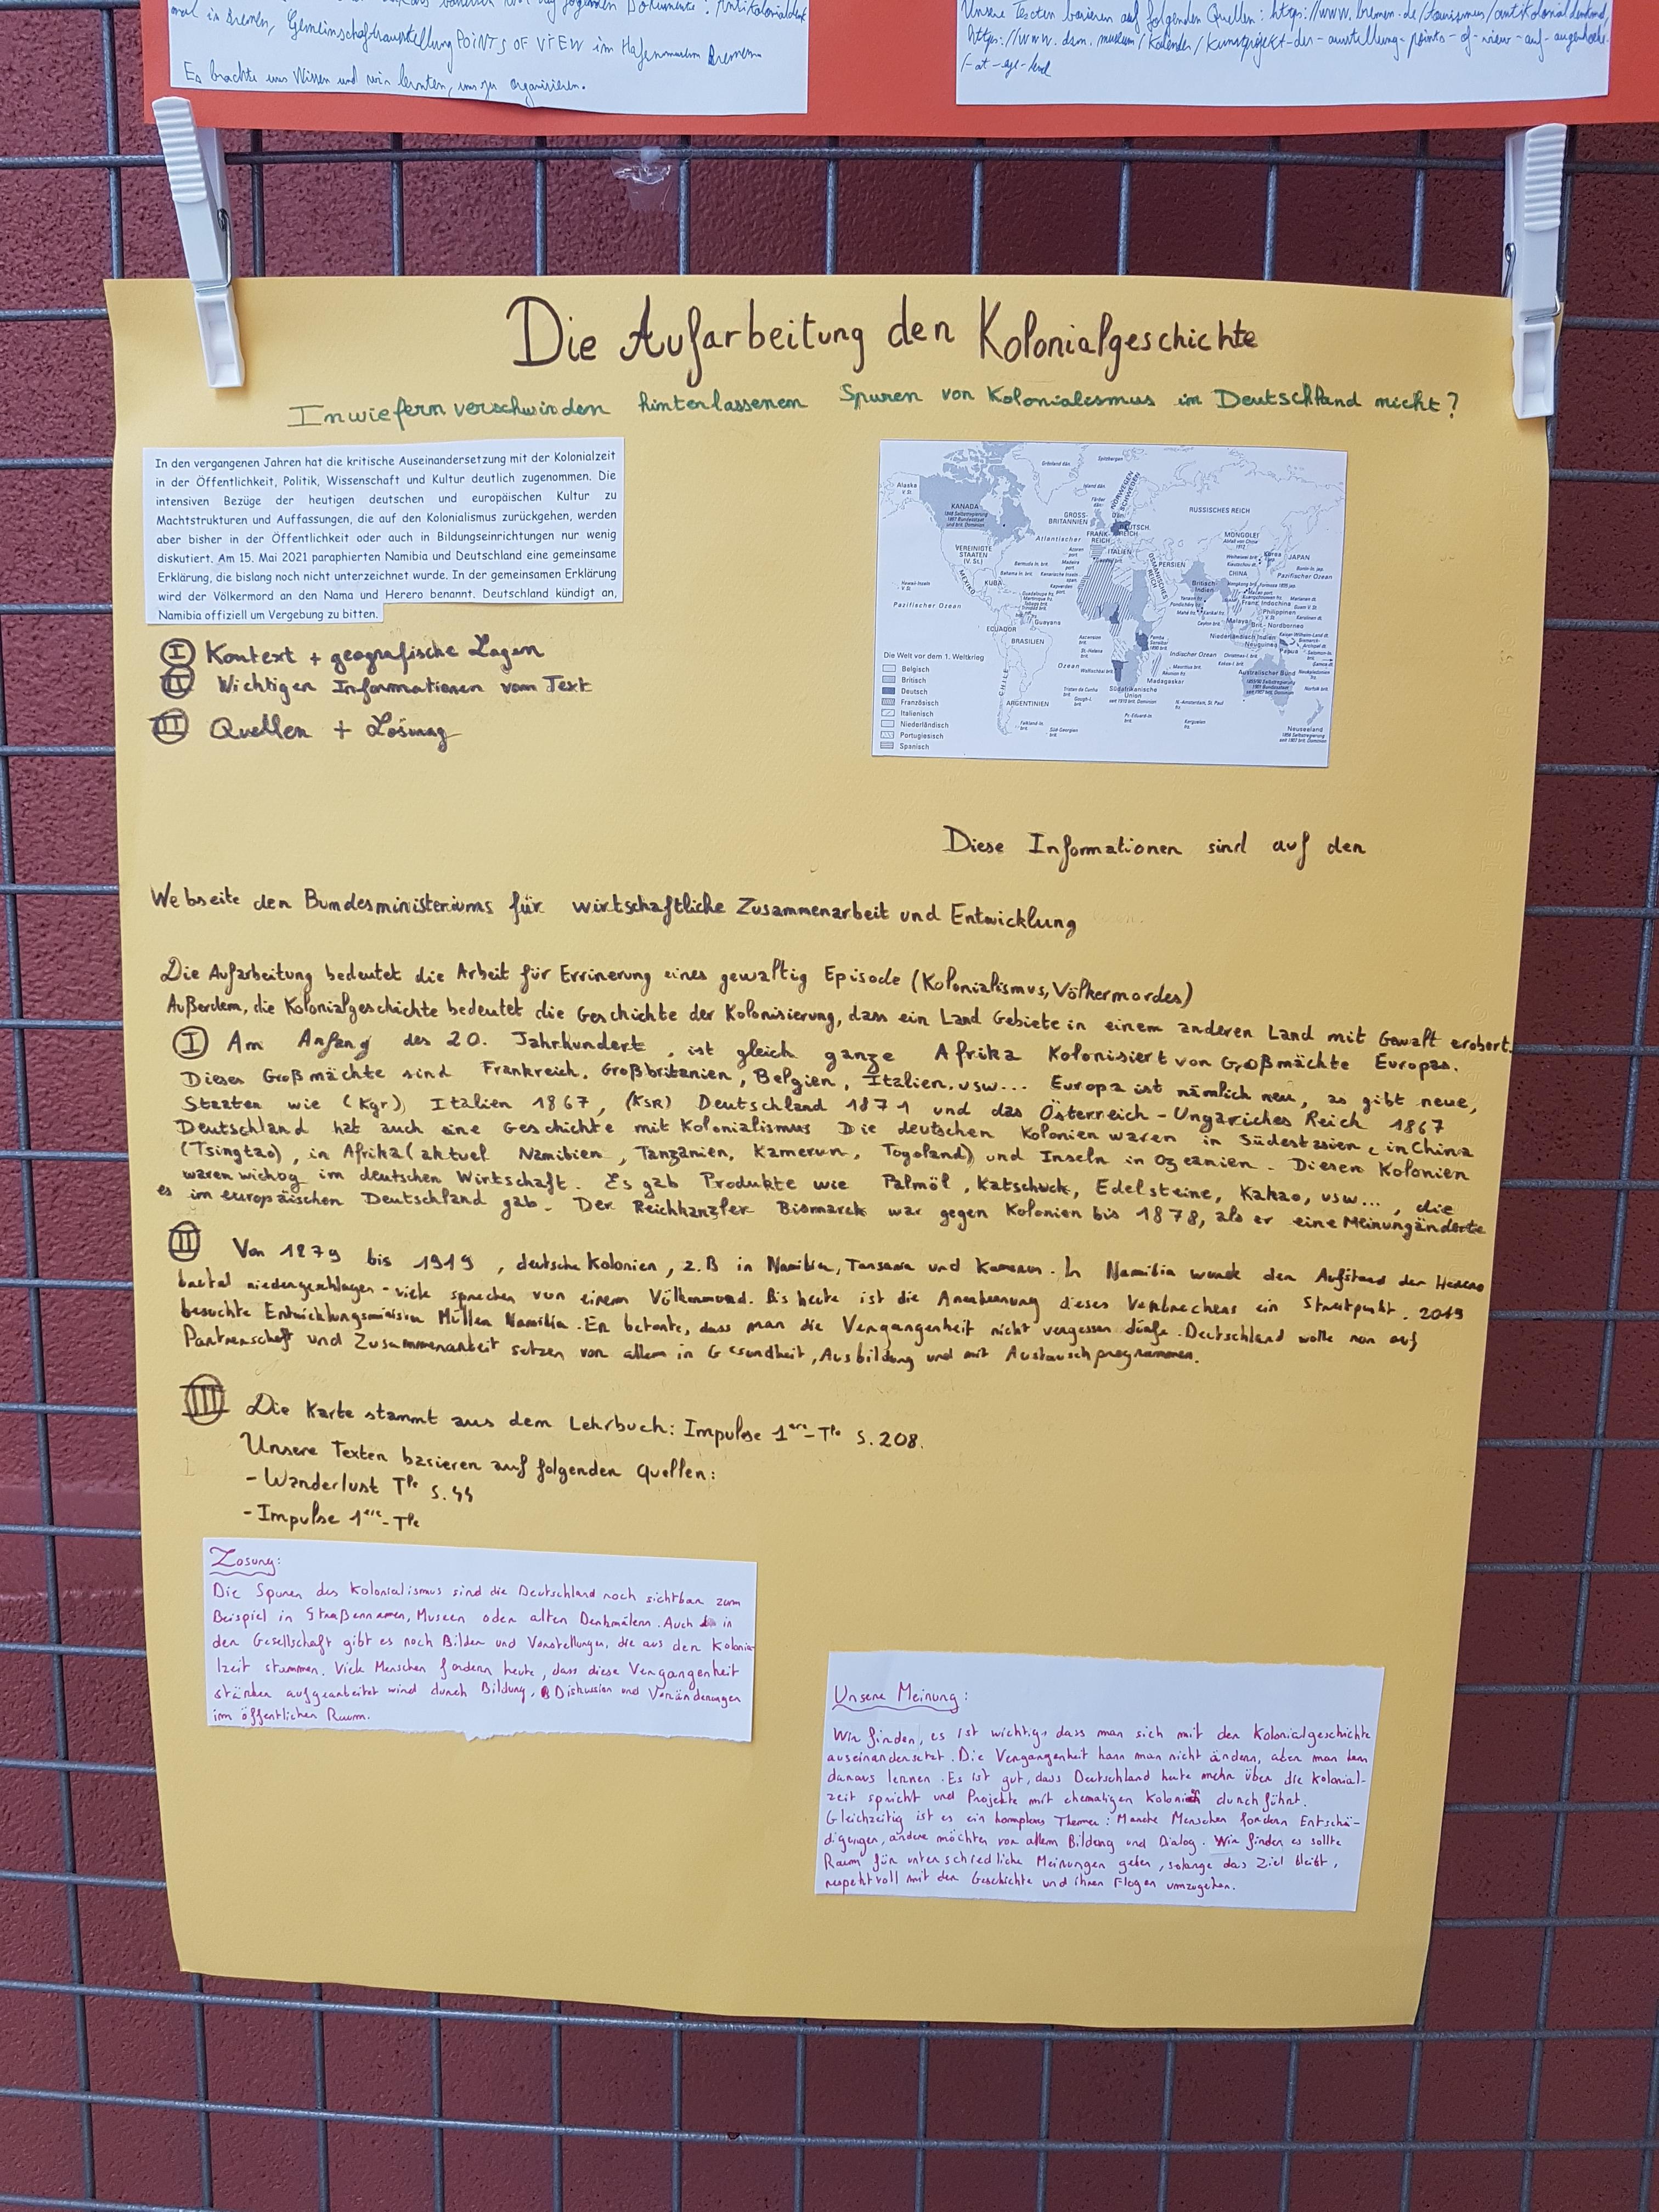 mal in Bremen, Gemeinschaftsausstellung POINTS OF VIEW im Hafenmuseum Bremen
Es brachte uns Wissen und wir lernten, uns zu organisieren.
Unsere Texten basieren auf folgenden Quellen: https://www.bremen.de/tourismus/antikolonialdenkmal,
https://www.dsm.museum/kalender/kunstprojekt-der-austellung-points-of-view-auf-augenhoehe-
/-at-eye-level
Die Aufarbeitung den Kolonialgeschichte
Inwiefern verschwinden hinterlassenen Spuren von Kolonialismus in Deutschland nicht?
In den vergangenen Jahren hat die kritische Auseinandersetzung mit der Kolonialzeit
in der Öffentlichkeit, Politik, Wissenschaft und Kultur deutlich zugenommen. Die
intensiven Bezüge der heutigen deutschen und europäischen Kultur zu
Machtstrukturen und Auffassungen, die auf den Kolonialismus zurückgehen, werden
aber bisher in der Öffentlichkeit oder auch in Bildungseinrichtungen nur wenig
diskutiert. Am 15. Mai 2021 paraphierten Namibia und Deutschland eine gemeinsame
Erklärung, die bislang noch nicht unterzeichnet wurde. In der gemeinsamen Erklärung
wird der Völkermord an den Nama und Herero benannt. Deutschland kündigt an,
Namibia offiziell um Vergebung zu bitten.
I Kontext + geografische Lagen
II Wichtigen Informationen vom Text
III Quellen + Lösung
Alaska
KANADA
GROSS-
BRITANNIEN
NORWEGEN
SCHWEDEN
RUSSISCHES REICH
DEUTSCH.
REICH
FRANK-
REICH
ITALIEN
VEREINIGTE
STAATEN
(V. St.)
MEXIKO
KUBA
Atlantischer
Ozean
OSMANISCHES
REICH
PERSIEN
MONGOLEI
CHINA
Korea
JAPAN
Pazifischer Ozean
Pazifischer Ozean
Britisch-
Indien
Franz. Indochina
Philippinen
Niederländisch Indien
Guayana
ECUADOR
BRASILIEN
CHILE
ARGENTINIEN
Indischer Ozean
Madagaskar
Südafrikanische
Union
Australischer Bund
Neuseeland
Die Welt vor dem 1. Weltkrieg
Belgisch
Britisch
Deutsch
Französisch
Italienisch
Niederländisch
Portugiesisch
Spanisch
Diese Informationen sind auf den
Webseite den Bundesministeriums für wirtschaftliche Zusammenarbeit und Entwicklung
Die Aufarbeitung bedeutet die Arbeit für Errinerung eines gewaltig Episode (Kolonialismus, Völkermordes)
Außerdem, die Kolonialgeschichte bedeutet die Geschichte der Kolonisierung, dass ein Land Gebiete in einem anderen Land mit Gewalt erobert.
I Am Anfang des 20. Jahrhundert, ist gleich ganze Afrika Kolonisiert von Großmächte Europas.
Dieses Großmächte sind Frankreich, Großbritanien, Belgien, Italien, usw... Europa ist nämlich neu, as gibt neue,
Staaten wie (Kgr) Italien 1867, (KSR) Deutschland 1871 und das Österreich-Ungariches Reich 1867
Deutschland hat auch eine Geschichte mit Kolonialismus Die deutschen Kolonien waren in Südestasien, in China
(Tsingtao), in Afrika (aktuel Namibien, Tanzanien, Kamerun, Togoland) und Inseln in Ozeanien. Diesen Kolonien
waren wichog im deutschen Wirtschaft. Es gab Produkte wie Palmöl, Katschuck, Edelsteine, Kakao, usw..., die
es im europäischen Deutschland gab. Der Reichkanzler Bismarck war gegen Kolonien bis 1878, als er eine Meinungänderte
II Von 1879 bis 1919, deutsche Kolonien, z.B in Namibia, Tansania und Kamerun. In Namibia wurde den Aufstand der Herero
brutal niedergeschlagen - viele sprechen von einem Völkermord. Bis heute ist die Anerkennung dieses Verbrechens ein Streitpunkt. 2019
besuchte Entwicklungsminister Müller Namibia. Er betonte, dass man die Vergangenheit nicht vergessen dürfe. Deutschland wolle nun auf
Partnerschaft und Zusammenarbeit setzen vor allem in Gesundheit, Ausbildung und mit Austauschprogrammen.
III Die Karte stammt aus dem Lehrbuch: Impulse 1ère-Tle S.208.
Unsere Texten basieren auf folgenden Quellen:
- Wanderlust Tle S.44
- Impulse 1ère-Tle
Lösung:
Die Spuren des Kolonialismus sind die Deutschland noch sichtbar zum
Beispiel in Straßennamen, Museen oder alten Denkmälern. Auch in
der Gesellschaft gibt es noch Bilder und Vorstellungen, die aus der Kolonia-
lzeit stammen. Viele Menschen fordern heute, dass diese Vergangenheit
stärker aufgearbeitet wird durch Bildung, Diskussion und Veränderungen
im öffentlichen Raum.
Unsere Meinung:
Wir finden, es ist wichtig, dass man sich mit der Kolonialgeschichte
auseinandersetzt. Die Vergangenheit kann man nicht ändern, aber man kann
daraus lernen. Es ist gut, dass Deutschland heute mehr über die Kolonial-
zeit spricht und Projekte mit ehemaligen Kolonien durchführt.
Gleichzeitig ist es ein komplexes Thema: Manche Menschen fordern Entschä-
digungen, andere möchten vor allem Bildung und Dialog. Wir finden es sollte
Raum für unterschiedliche Meinungen geben, solange das Ziel bleibt,
respektvoll mit der Geschichte und ihren Flogen umzugehen.